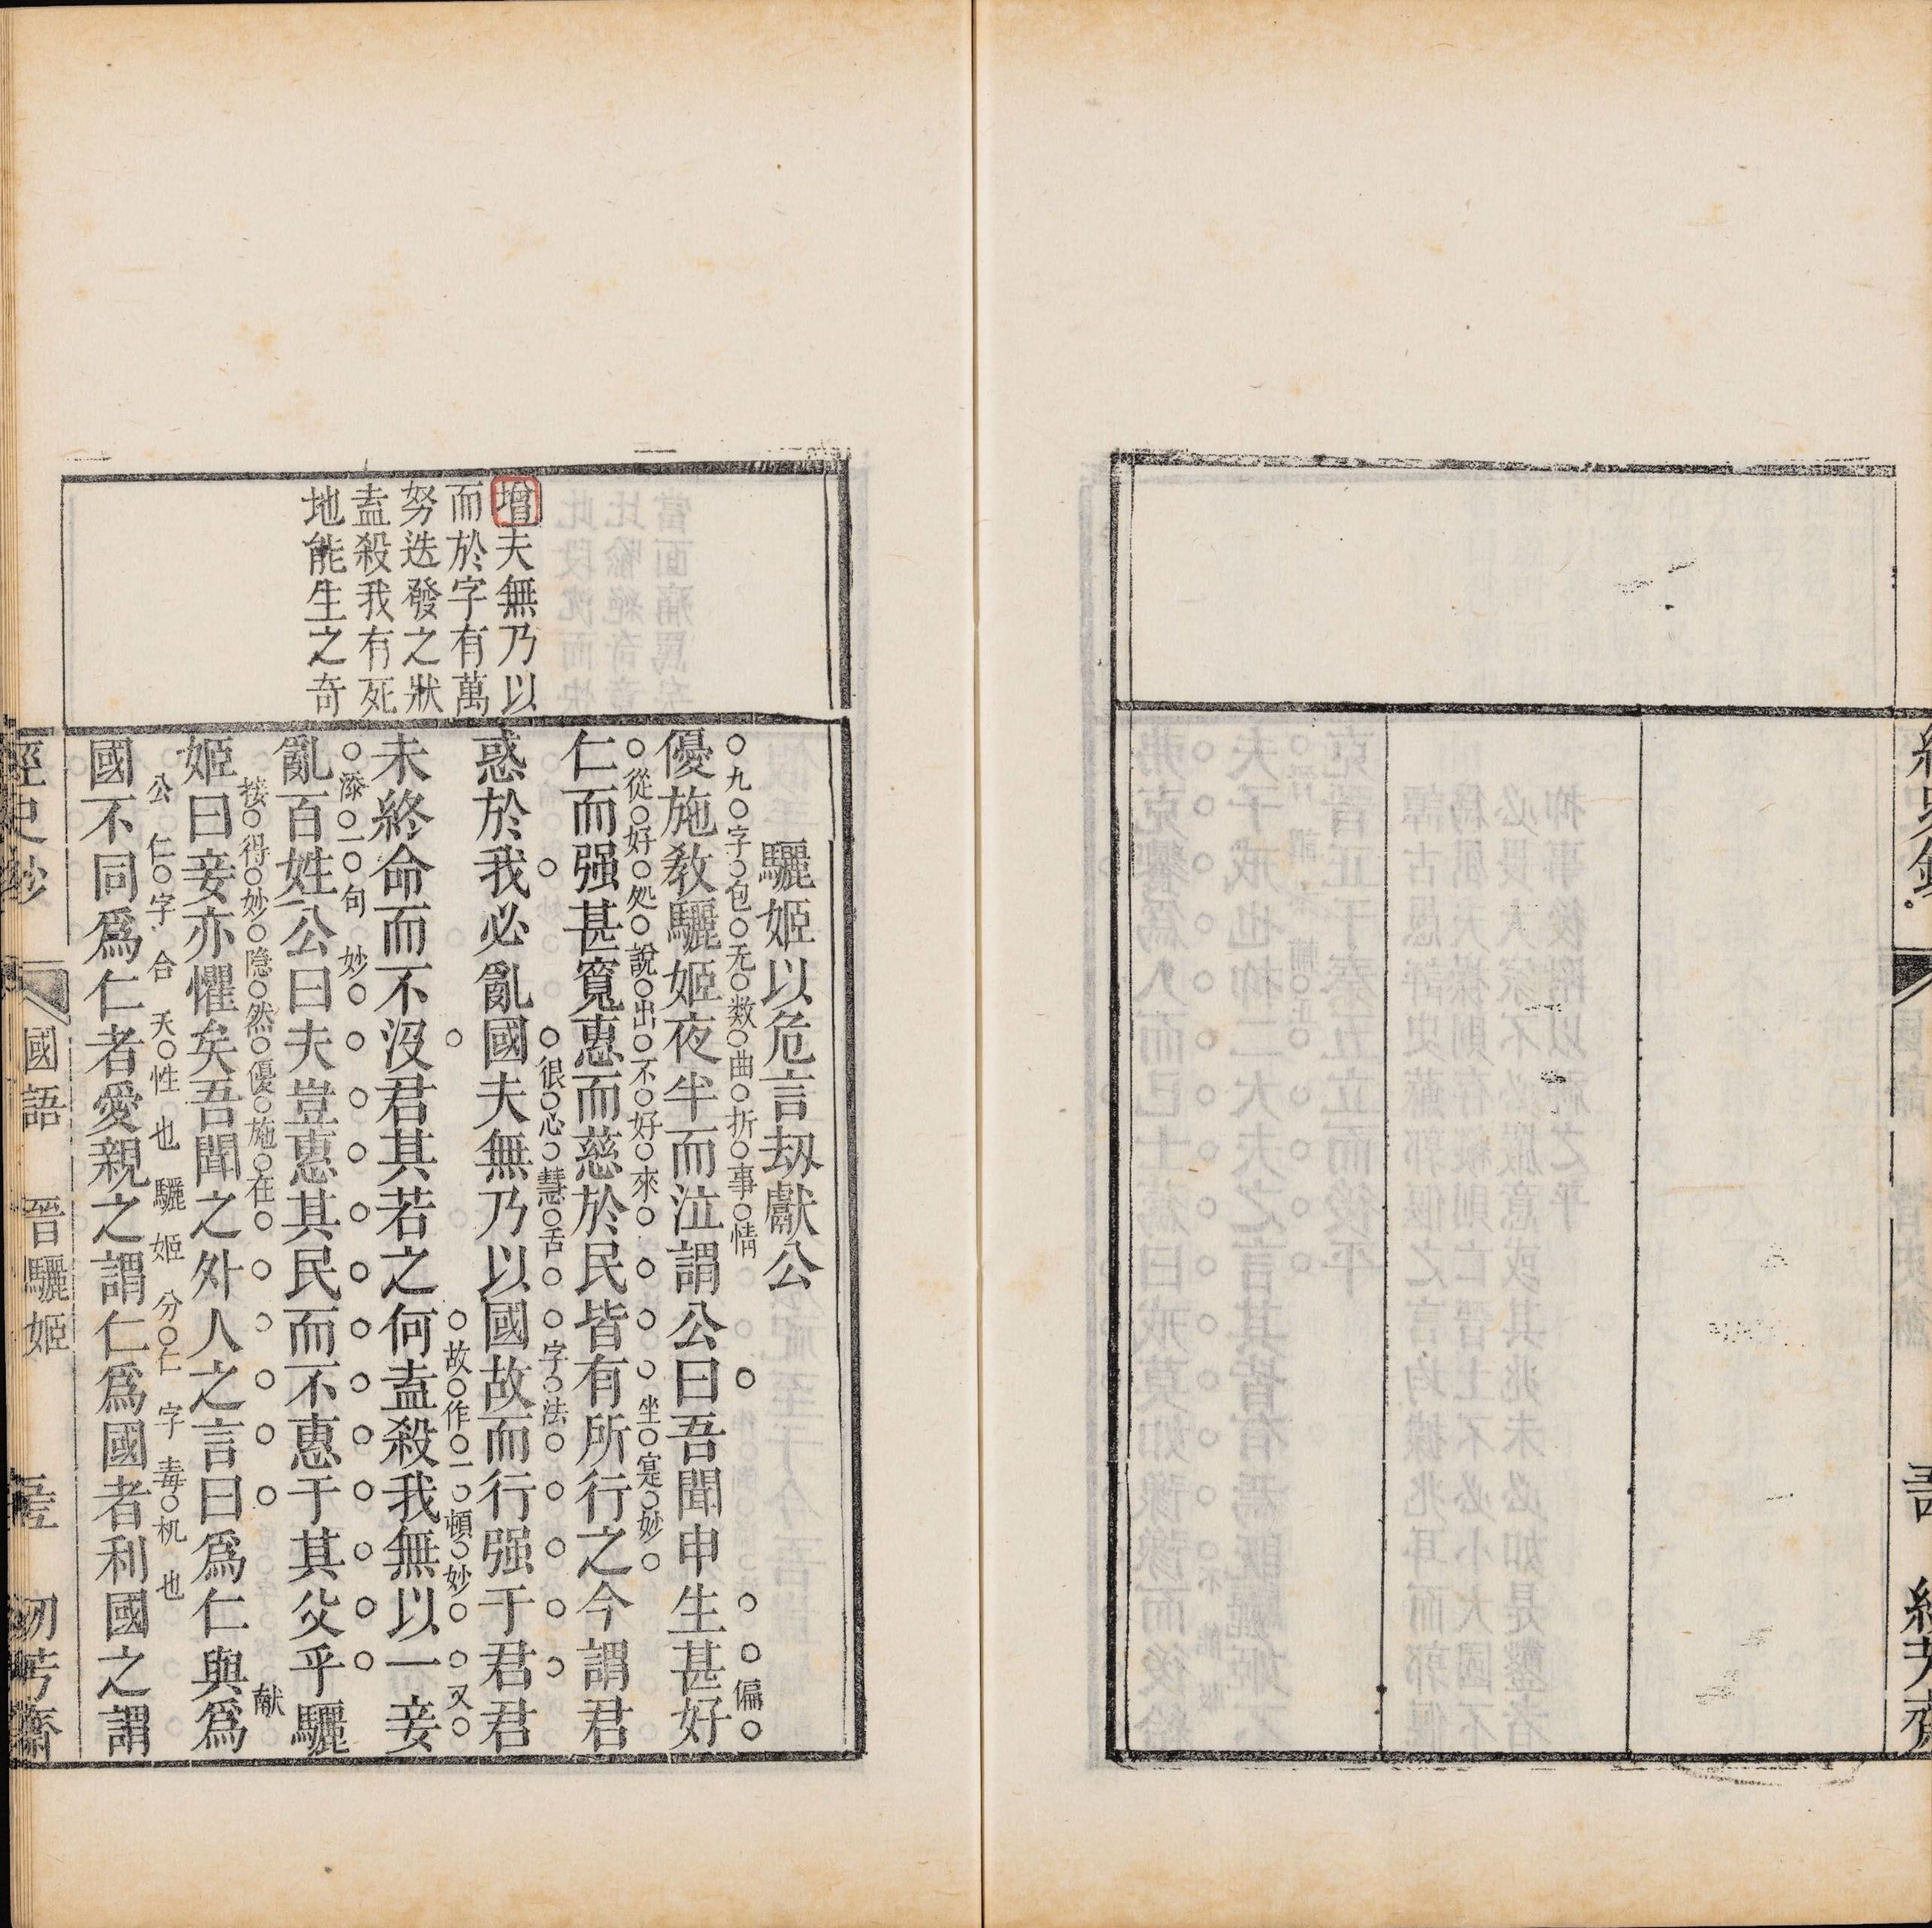 增夫無乃以
而於字有萬
努迭發之狀
盍殺我有死
地能生之奇
驪姬以危言刼獻公
九字包无数曲折事情
偏
優施敎驪姬夜半而泣謂公曰吾聞申生甚好
從好処說出不好來
坐寔妙
仁而强甚寬惠而慈於民皆有所行之今謂君
很心慧舌
字法
惑於我必亂國夫無乃以國故而行强于君君
故作一頓妙
又
未終命而不沒君其若之何盍殺我無以一妾
添一句
妙
亂百姓公曰夫豈惠其民而不惠于其父乎驪
接得妙隐然優施在
献
姬曰妾亦懼矣吾聞之外人之言曰爲仁與爲
公仁字合天性也驪姬分仁字毒机也
國不同爲仁者愛親之謂仁爲國者利國之謂
經史鈔
國語 晉驪姬
芳齋